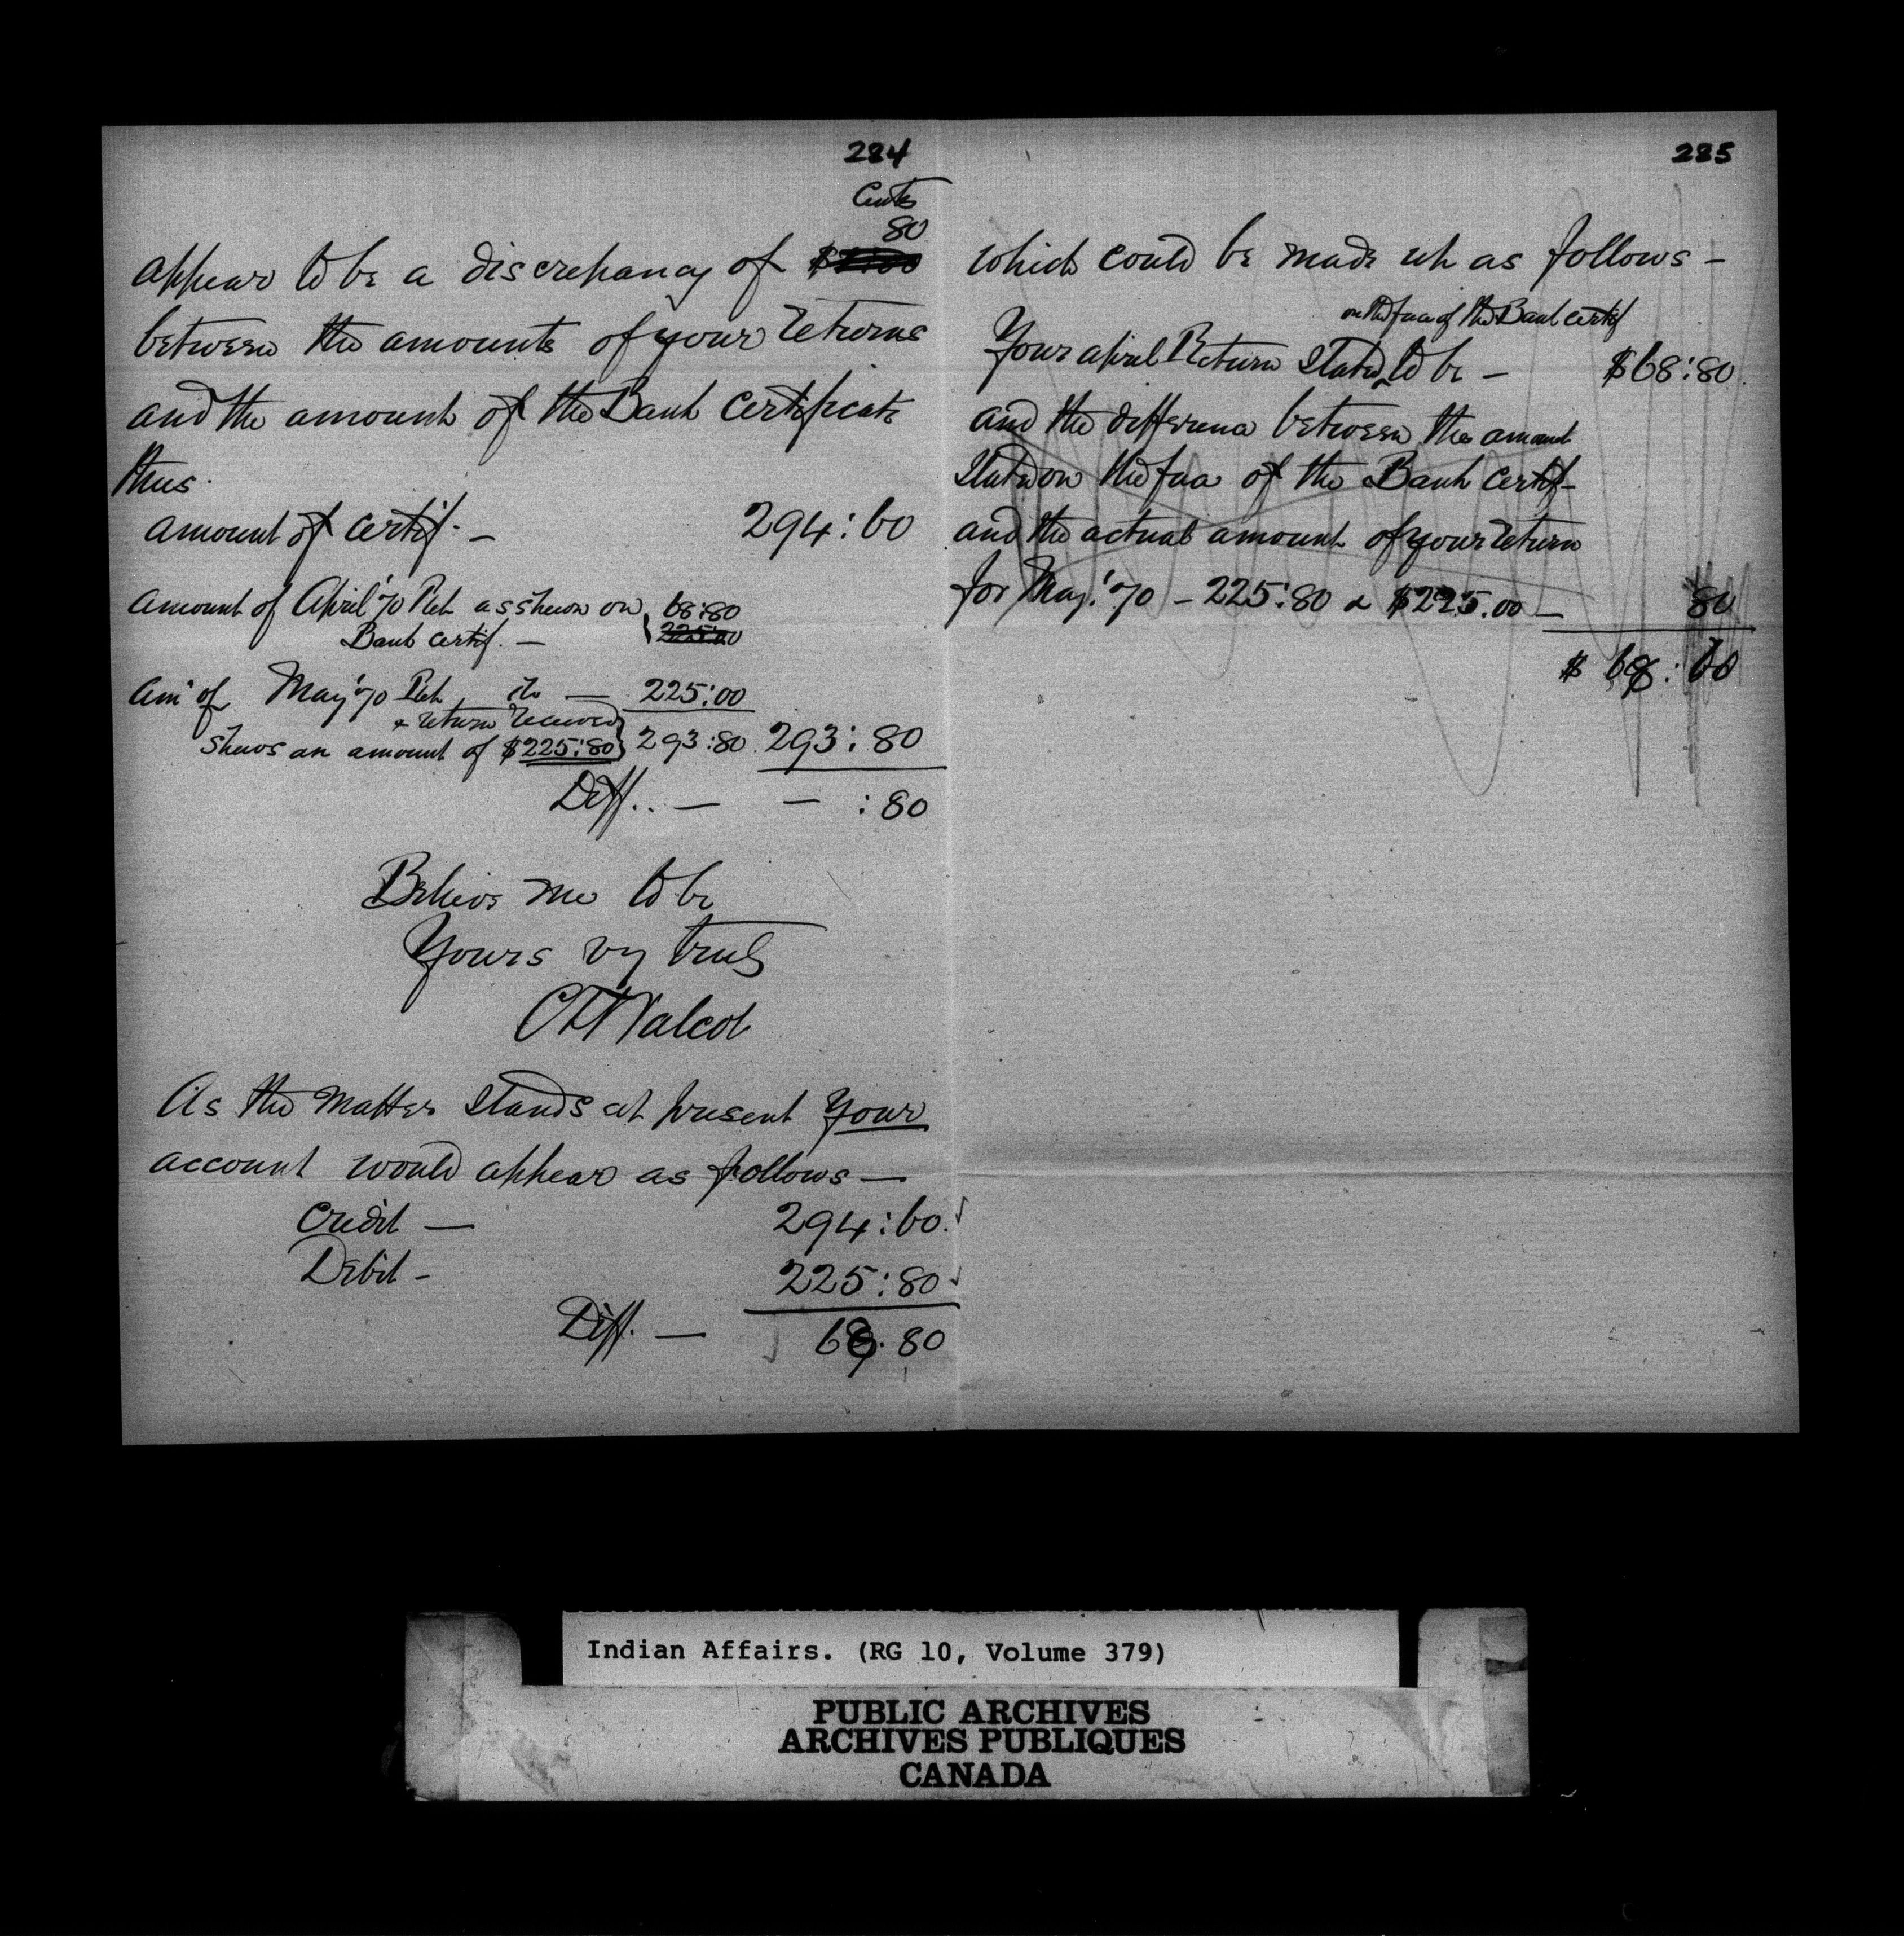 284
Cents
80
appear to be a discrepancy of
between the amounts of your returns
and the amount of the Bank Certificate
thus.
amount of certif. — 294:60
Amount of April '70 Ret. as shewn on 68:80
Bank certif. — 225:00
Amt of May '70 Ret do — 225:00
& return received
shews an amount of $225:80 } 293:80 293:80
Diff.. — — :80
Believe me to be
Yours vy truly
C T Walcot
As the matter stands at present your
account would appear as follows —
Credit — 294:60.
Debit - 225:80
Diff. — 68.80
285
which could be made up as follows —
on the face of the Bank certif
Your April Return stated to be — $68:80.
and the difference between the amount
stated on the face of the Bank certif-
and the actual amount of your return
for May '70 — 225:80 & $225.00 — 80
$ 68:
Indian Affairs. (RG 10, Volume 379)
PUBLIC ARCHIVES
ARCHIVES PUBLIQUES
CANADA